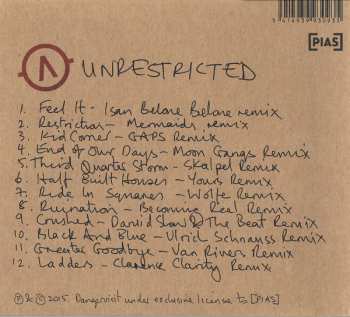 5414939930933
[PIAS]
UNRESTRICTED
1. Feel It - Ison Belone Belone remix
2. Restrictions - Mermaids remix
3. Kid Corner - GAPS Remix
4. End of Our Days - Moon Gangs Remix
5. Third Quarter Storm - Skalpel Remix
6. Half Built Houses - Yours Remix
7. Ride In Squares - Wolfe Remix
8. Ruination - Becoming Real Remix
9. Crushed - David Slow To The Beat Remix
10. Black And Blue - Ulrich Schnauss Remix
11. Greater Goodbye - Van Rivers Remix
12. Ladders - Clarence Clarity Remix
℗ & © 2015. Dangervisit under exclusive license to [PIAS]